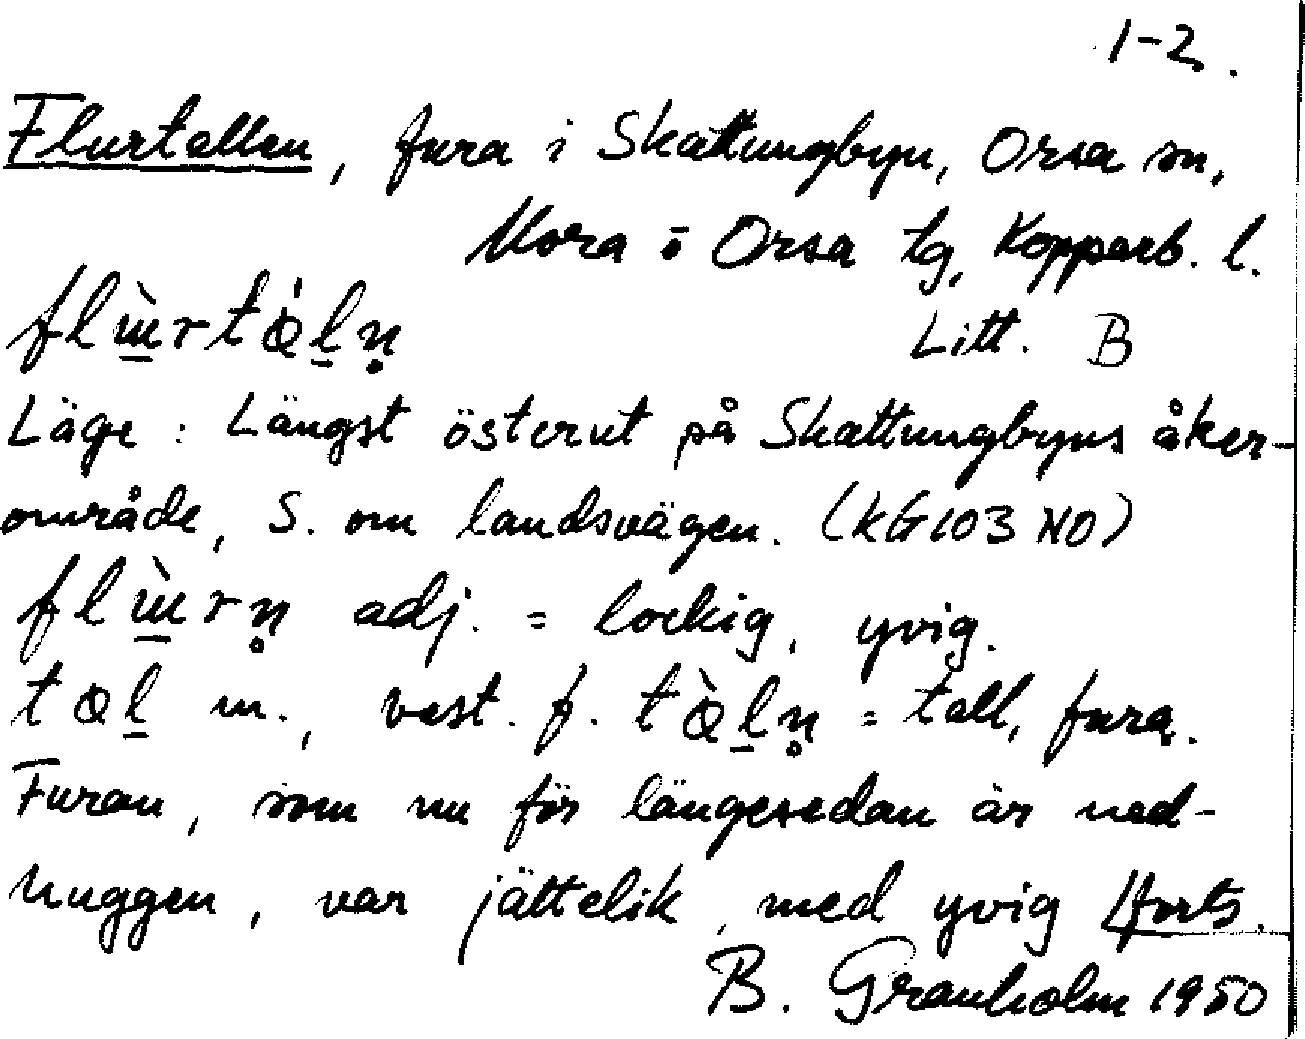 1-2.
Flurtallen, fura i Skattungbyn, Orsa sn,
Mora o Orsa tg, Kopparb. l.
Litt. B
Läge: Längst österut på Skattungbyns åker-
område, S. om landsvägen. (KG103 NO)
adj. = lockig, yvig.
m., best. f. = tall, fura.
Furan, som nu för längesedan är ned-
huggen, var jättelik, med yvig Forts.
B. Granholm 1950